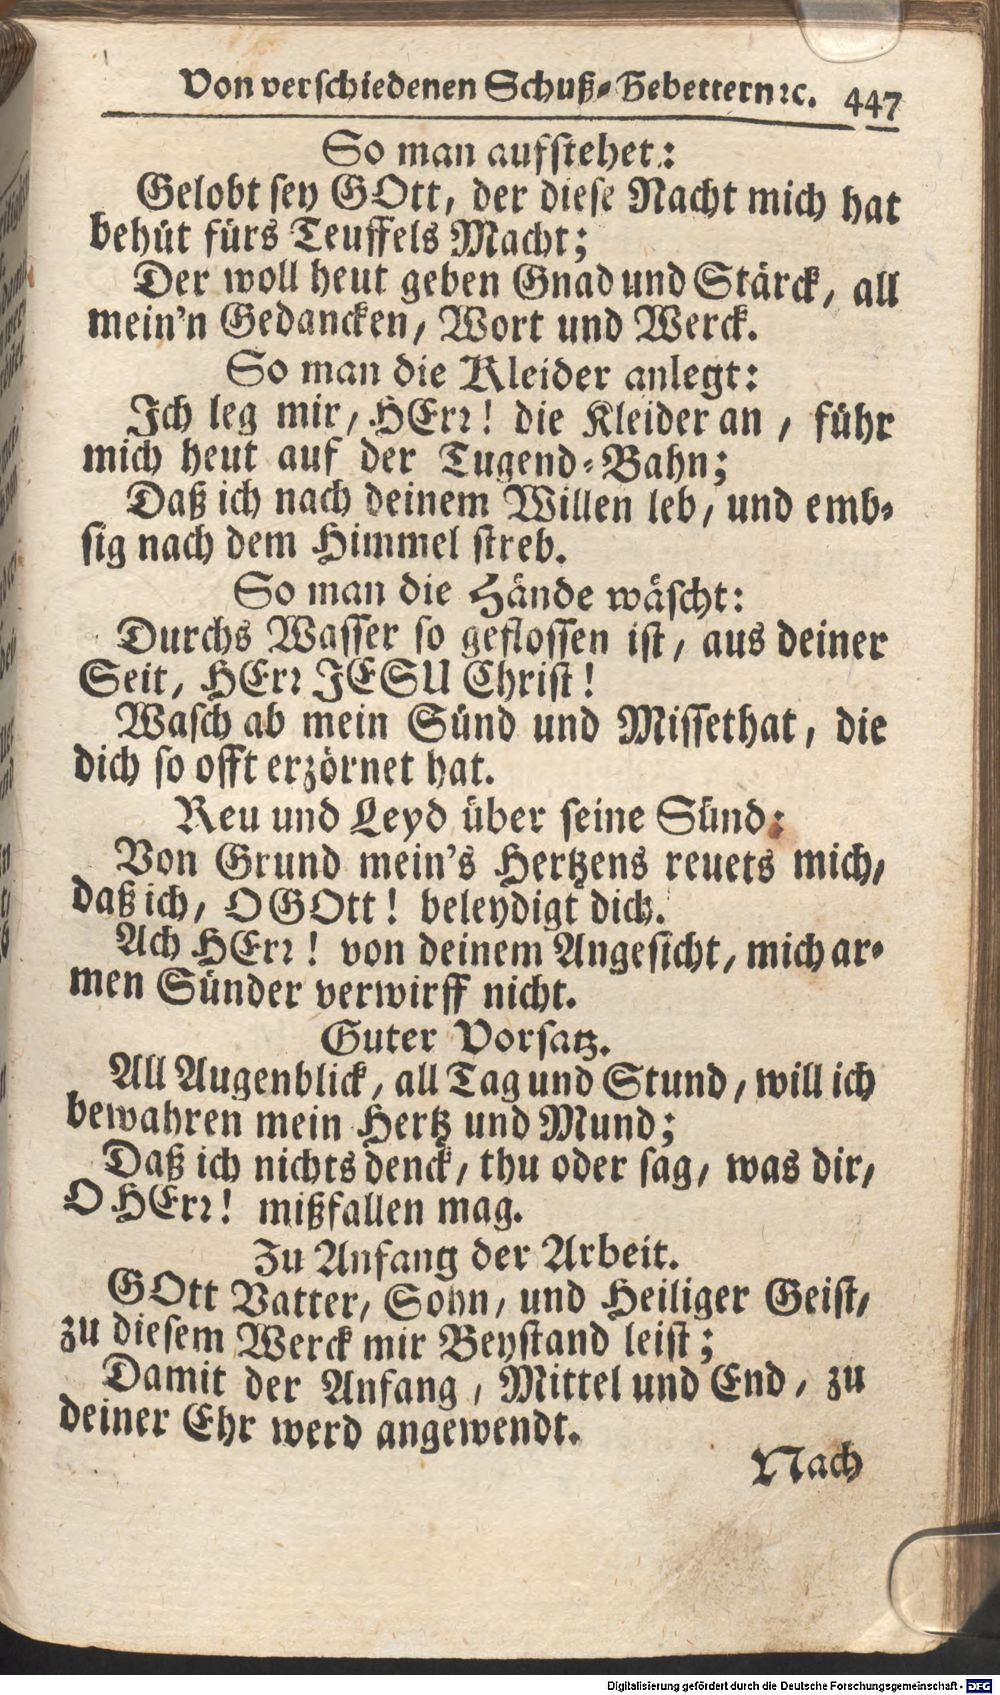 Von verschiedenen Schuß-Gebettern ꝛc. 447
So man aufstehet:
Gelobt sey GOtt, der diese Nacht mich hat
behüt fürs Teuffels Macht;
Der woll heut geben Gnad und Stärck, all
mein'n Gedancken, Wort und Werck.
So man die Kleider anlegt:
Ich leg mir, HErꝛ! die Kleider an, führ
mich heut auf der Tugend-Bahn;
Daß ich nach deinem Willen leb, und emb-
sig nach dem Himmel streb.
So man die Hände wäscht:
Durchs Wasser so geflossen ist, aus deiner
Seit, HErꝛ JESU Christ!
Wasch ab mein Sünd und Missethat, die
dich so offt erzörnet hat.
Reu und Leyd über seine Sünd:
Von Grund mein's Hertzens reuets mich,
daß ich, O GOtt! beleydigt dich.
Ach HErꝛ! von deinem Angesicht, mich ar-
men Sünder verwirff nicht.
Guter Vorsatz.
All Augenblick, all Tag und Stund, will ich
bewahren mein Hertz und Mund;
Daß ich nichts denck, thu oder sag, was dir,
O HErꝛ! mißfallen mag.
Zu Anfang der Arbeit.
GOtt Vatter, Sohn, und Heiliger Geist,
zu diesem Werck mir Beystand leist;
Damit der Anfang, Mittel und End, zu
deiner Ehr werd angewendt.
Nach
Digitalisierung gefördert durch die Deutsche Forschungsgemeinschaft - DFG